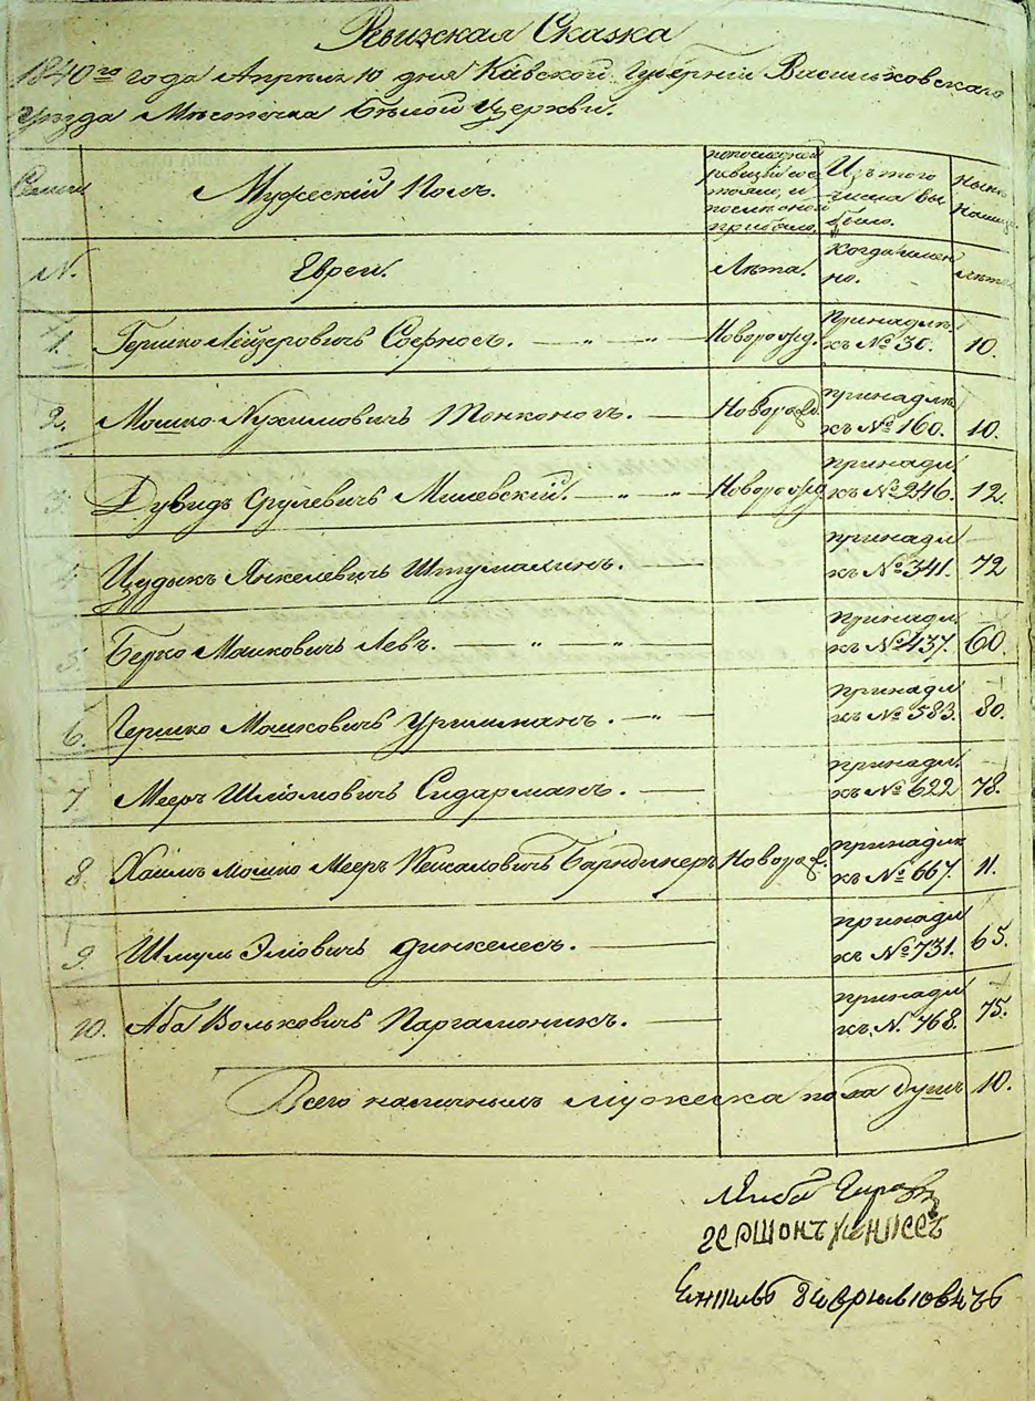 Ревизская Сказка
1840го года Апреля 10 дня Кіевской Губерніи Васильковскаго
уезда Местечка Белой Церкви.
Семьи
Мужескій Полъ.
по последней
ревизіи со
стояло, и
после оной
прибыло.
Изъ того
числа вы
было.
Ныне
На лицо
№.
Евреи.
Лета.
Когда имен
но.
лета
1. Гершко Лейзеровичъ Соерносъ. — „ — „ — Новорожд. принадле. къ № 30. 10.
2. Мошко Нухимовичъ Тонконогъ. — Новорожд. принадле къ № 160. 10.
3. Дувидъ Срулевичъ Милевскій. — „ — „ Новорожд принадл. къ № 246. 12.
4. Цудыкъ Янкелевичъ Штумалинъ. — принадл къ № 341. 72
5. Берко Машковичъ Левъ. — „ — „ — принадл. къ № 437. 60.
6. Гершко Машковичъ Уришманъ. — „ — принадл къ № 583. 80.
7. Мееръ Шліомовичъ Сидарманъ. — принадл. къ № 622 78.
8. Хаимъ Мошко Мееръ Пейсаховичъ Барндикеръ Новорож. принадле къ № 667. 11.
9. Шмуль Эліовичъ Динкелесъ. — принадл къ № 731. 65.
10. Аба Вольковичъ Паргамоникъ. — принадл къ №. 768. 75.
Всего наличнымъ мужеска пола душъ 10.
Гершонъ